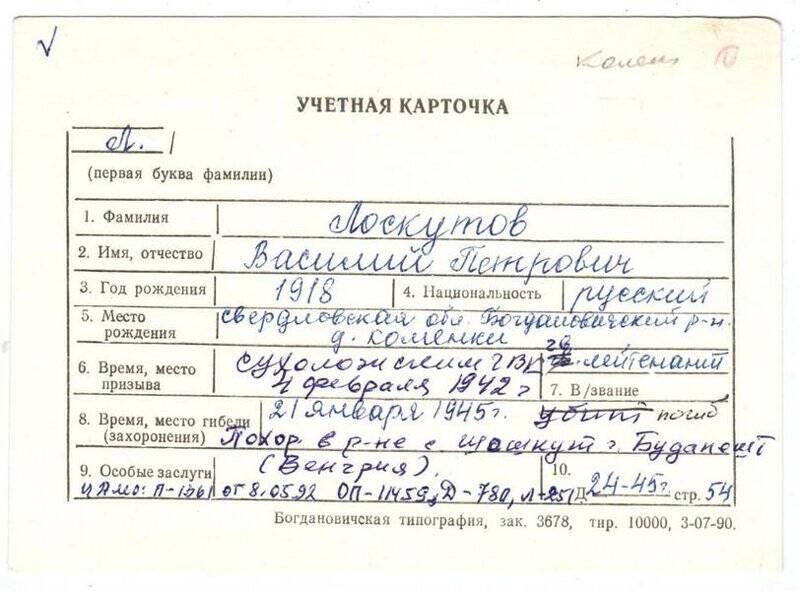 Камен
УЧЕТНАЯ КАРТОЧКА
Л.
(первая буква фамилии)
1. Фамилия Лоскутов
2. Имя, отчество Василий Петрович
3. Год рождения 1918 4. Национальность русский
5. Место рождения Свердловская обл. Богдановичский р-н.
д. Коменки
6. Время, место призыва Сухоложским ГВК
4 февраля 1942 г
гв лейтенант
7. В/звание
8. Время, место гибели (захоронения) 21 января 1945г. убит погиб
Похор. в р-не с. Шошкут г. Будапешт
(Венгрия).
9. Особые заслуги
ЦАМО: П-1361 от 8.05.92 ОП-11459, Д-780, л-251
10. Д 24-45г. стр. 54
Богдановичская типография, зак. 3678, тир. 10000, 3-07-90.